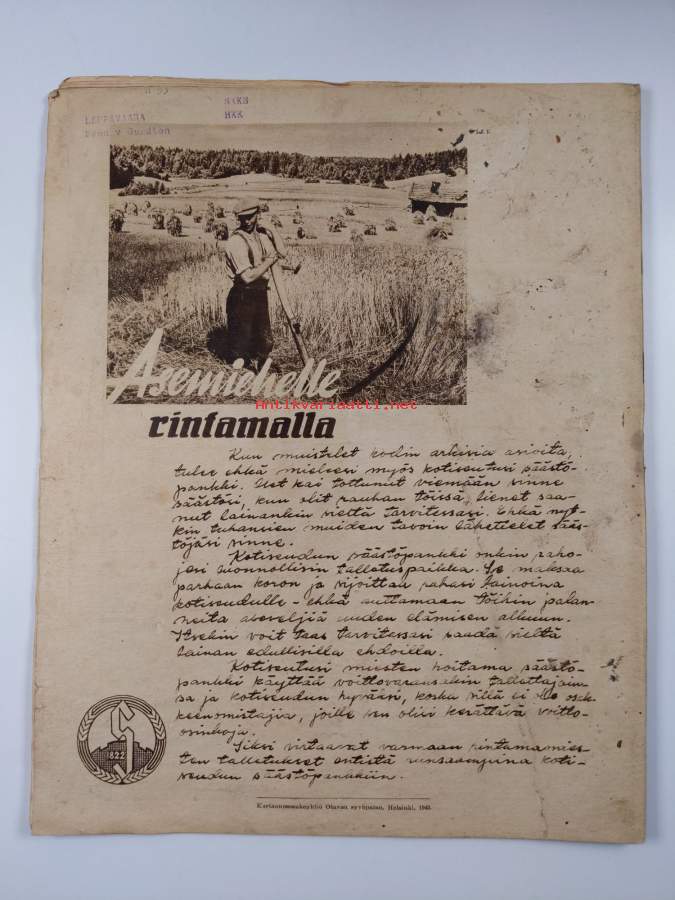 LEPPÄVAARA
HKK
Asemiehelle
Antikvariaatti.net
rintamalla
Kun muistelet kodin arkisia asioita,
tulee ehkä mieleesi myös kotiseutusi säästö-
pankki. Olet kai tottunut viemään sinne
säästösi, kun olit rauhan töissä, lienet saa-
nut lainankin sieltä tarvitessasi. Ehkä nyt-
kin tuhansien muiden tavoin lähettelet sääs-
töjäsi sinne.
Kotiseudun säästöpankki onkin raho-
jesi luonnollisin talletuspaikka. Se maksaa
parhaan koron ja sijoittaa rahasi lainoina
kotiseudulle - ehkä auttamaan töihin palan-
neita aseveljiä uuden elämisen alkuun.
Itsekin voit taas tarvitessasi saada sieltä
lainan edullisilla ehdoilla.
Kotiseutusi miesten hoitama säästö-
pankki käyttää voittovaransakin tallettajain-
sa ja kotiseudun hyväksi, koska sillä ei ole osak-
keenomistajia, joille sen olisi kerättävä voitto-
osinkoja.
Siksi virtaavat varmaan rintamamies-
ten talletukset entistä runsaampina koti-
seudun säästöpankkiin.
S
1822
Kustannusosakeyhtiö Otavan syväpaino, Helsinki, 1943.